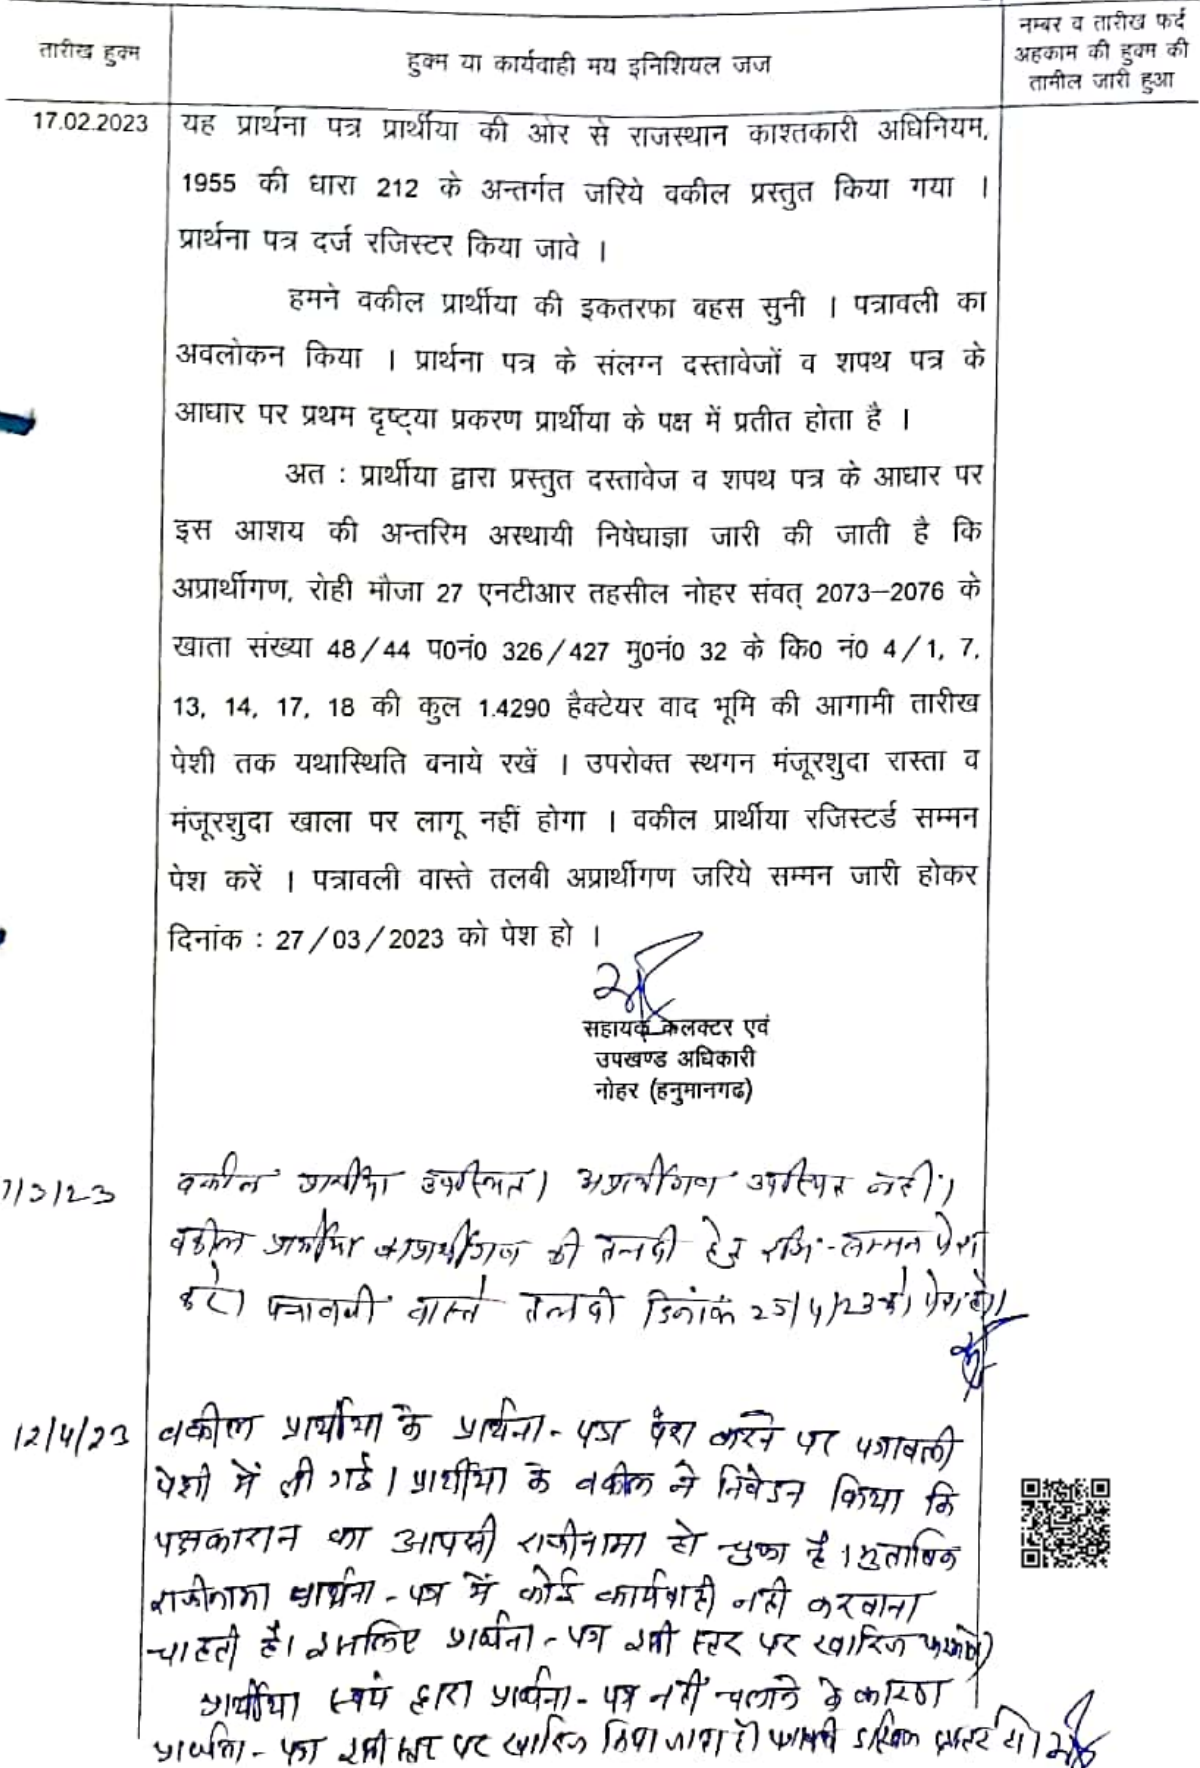 तारीख हुक्म
हुक्म या कार्यवाही मय इनिशियल जज
नम्बर व तारीख फर्द
अहकाम की हुक्म की
तामील जारी हुआ
17.02.2023
यह प्रार्थना पत्र प्रार्थीया की ओर से राजस्थान काश्तकारी अधिनियम,
1955 की धारा 212 के अन्तर्गत जरिये वकील प्रस्तुत किया गया ।
प्रार्थना पत्र दर्ज रजिस्टर किया जावे ।
हमने वकील प्रार्थीया की इकतरफा बहस सुनी । पत्रावली का
अवलोकन किया । प्रार्थना पत्र के संलग्न दस्तावेजों व शपथ पत्र के
आधार पर प्रथम दृष्ट्या प्रकरण प्रार्थीया के पक्ष में प्रतीत होता है ।
अत : प्रार्थीया द्वारा प्रस्तुत दस्तावेज व शपथ पत्र के आधार पर
इस आशय की अन्तरिम अस्थायी निषेधाज्ञा जारी की जाती है कि
अप्रार्थीगण, रोही मौजा 27 एनटीआर तहसील नोहर संवत् 2073–2076 के
खाता संख्या 48/44 प0नं0 326/427 मु0नं0 32 के कि0 नं0 4/1, 7,
13, 14, 17, 18 की कुल 1.4290 हैक्टेयर वाद भूमि की आगामी तारीख
पेशी तक यथास्थिति बनाये रखें । उपरोक्त स्थगन मंजूरशुदा रास्ता व
मंजूरशुदा खाला पर लागू नहीं होगा । वकील प्रार्थीया रजिस्टर्ड सम्मन
पेश करें । पत्रावली वास्ते तलबी अप्रार्थीगण जरिये सम्मन जारी होकर
दिनांक : 27/03/2023 को पेश हो ।
सहायक कलक्टर एवं
उपखण्ड अधिकारी
नोहर (हनुमानगढ)
7/3/23
वकील प्रार्थीया उपस्थित। अप्रार्थीगण उपस्थित नहीं।
वकील प्रार्थीया अप्रार्थीगण की तलबी हेतु रजि. सम्मन पेश
करे। पत्रावली वास्ते तलबी दिनांक 25/4/23 को पेश हो।
12/4/23
वकील प्रार्थीया के प्रार्थना-पत्र पेश करने पर पत्रावली
पेशी में ली गई। प्रार्थीया के वकील ने निवेदन किया कि
पक्षकारान का आपसी राजीनामा हो चुका है। मुताबिक
राजीनामा प्रार्थना-पत्र में कोई कार्यवाही नही करवाना
चाहती है। इसलिए प्रार्थना-पत्र इसी स्तर पर खारिज
प्रार्थीया स्वयं द्वारा प्रार्थना-पत्र नहीं चलाने के कारण
प्रार्थना-पत्र इसी स्तर पर खारिज किया जाता है। पत्रावली दाखिल दफ्तर हो।